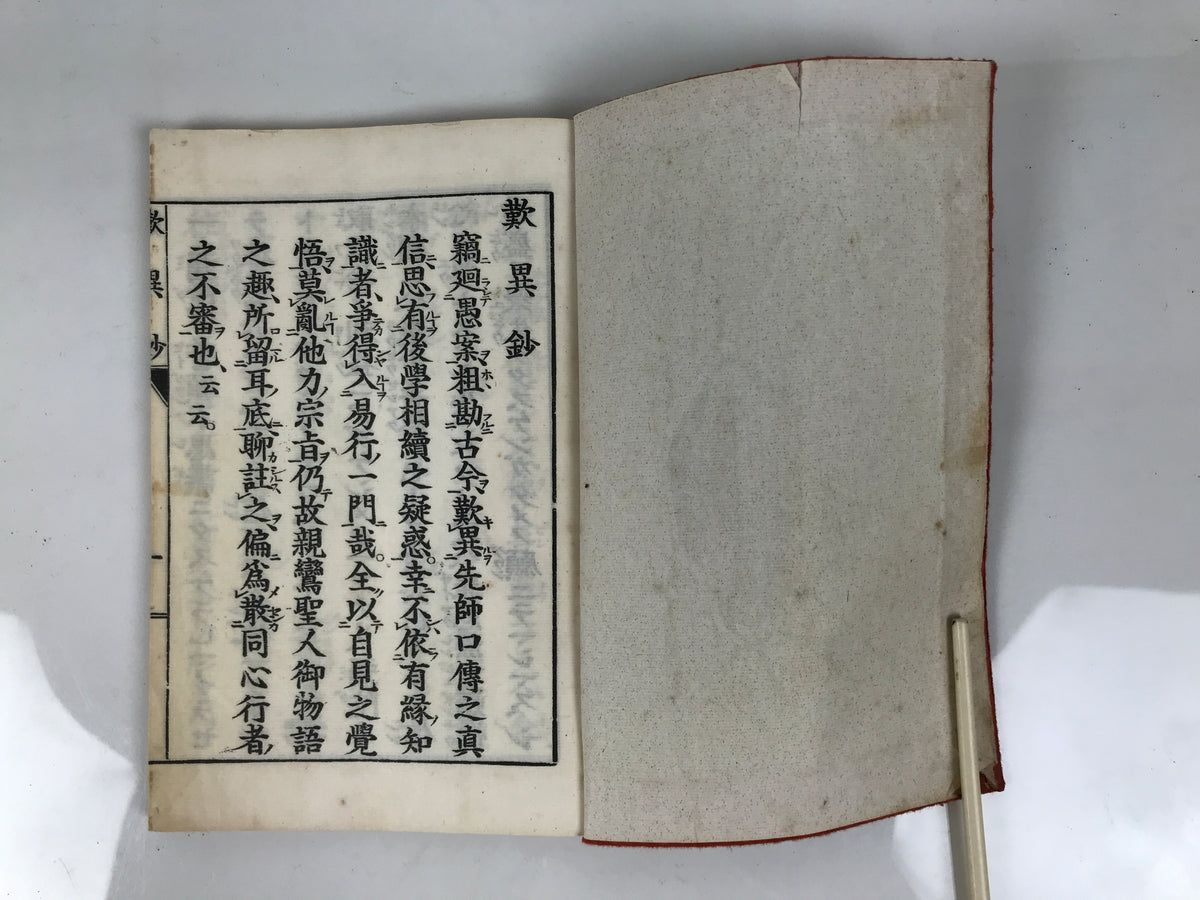 歎異鈔
竊廻愚案粗勘古今歎異先師口傳之真
信思有後學相續之疑惑。幸不依有緣知
識者、爭得入易行一門哉。全以自見之覺
悟莫亂他力宗旨仍故親鸞聖人御物語
之趣、所留耳底、聊註之偏爲散同心行者
之不審也、云云。
歎異鈔
一